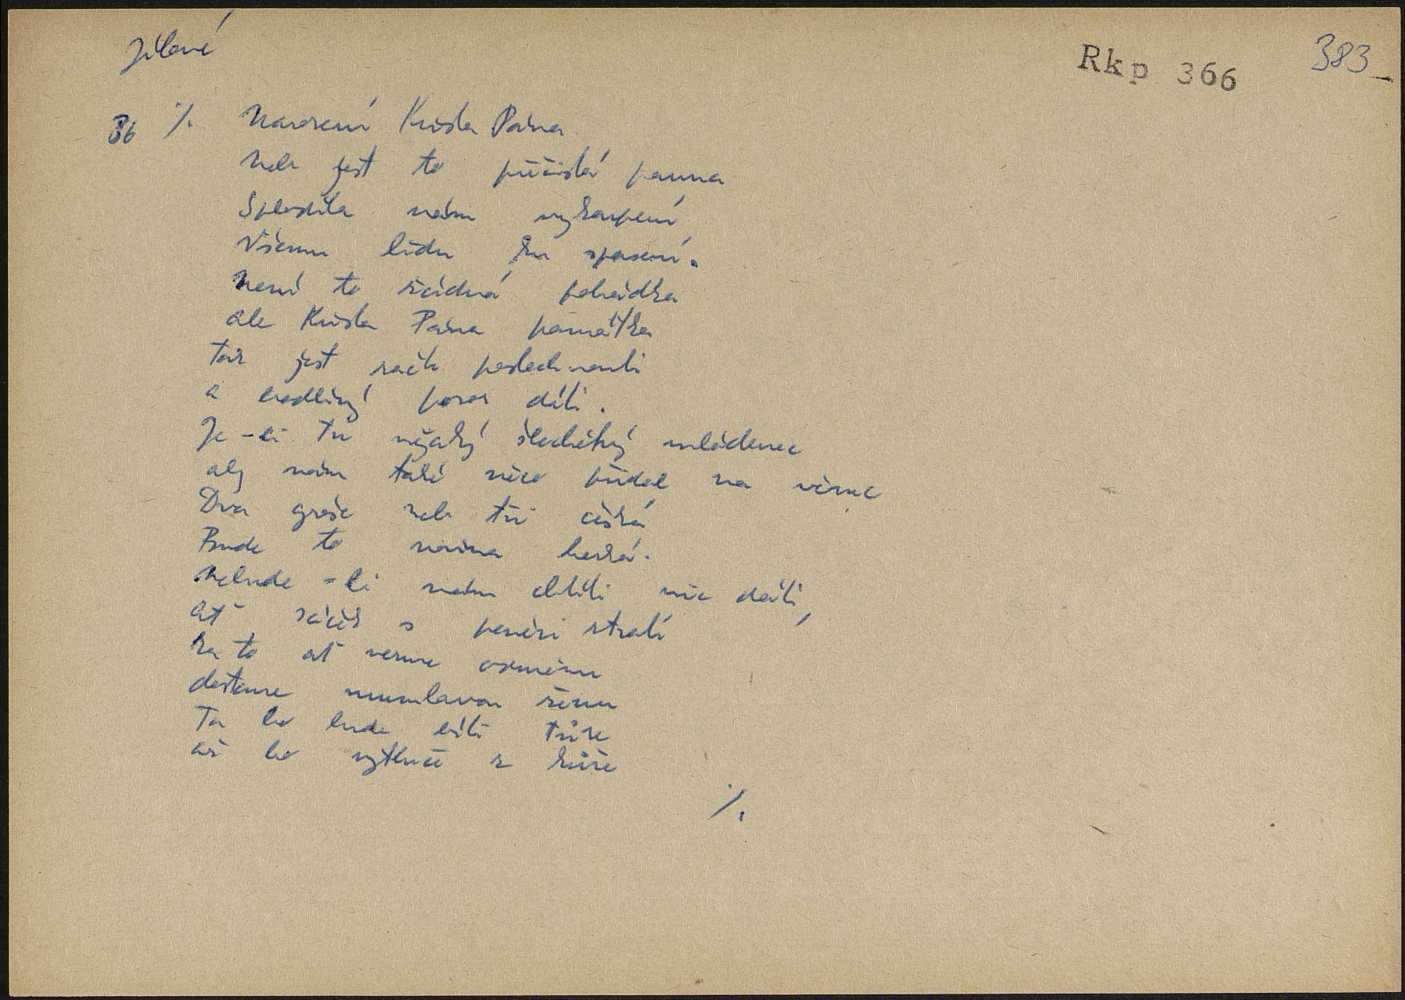 Jílové
Rkp 366
383
36 ·/. Narození Krista Pána
neb jest to přečistá panna
Splodila nám vykoupení
Všemu lidu ku spasení.
Není to žádná pohádka
ale Krista Pána památka
tak jest račte poslechnouti
a pozor dáti.
Je-li tu nějaký šlechetný mládenec
aby nám také něco přidal na věnec
Dva groše neb tři česká
Bude to novina hezká.
Nebude-li nám chtíti nic dáti,
ať sáček s penězi ztratí
Za to ať vezme
dostane mumlavou ženu
Ta ho bude bíti tuze
až ho vytluče z kůže
·/.